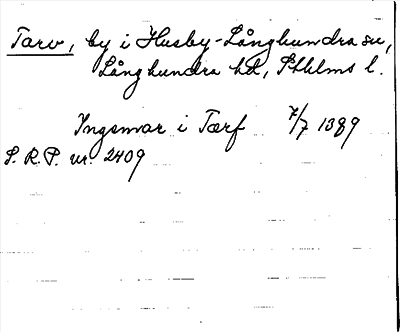 Tarv, by i Husby-Långhundra sn,
Långhundra hd, Sthlms l.
Ingemar i Tærf 7/7 1389
S.R.P. nr. 2409